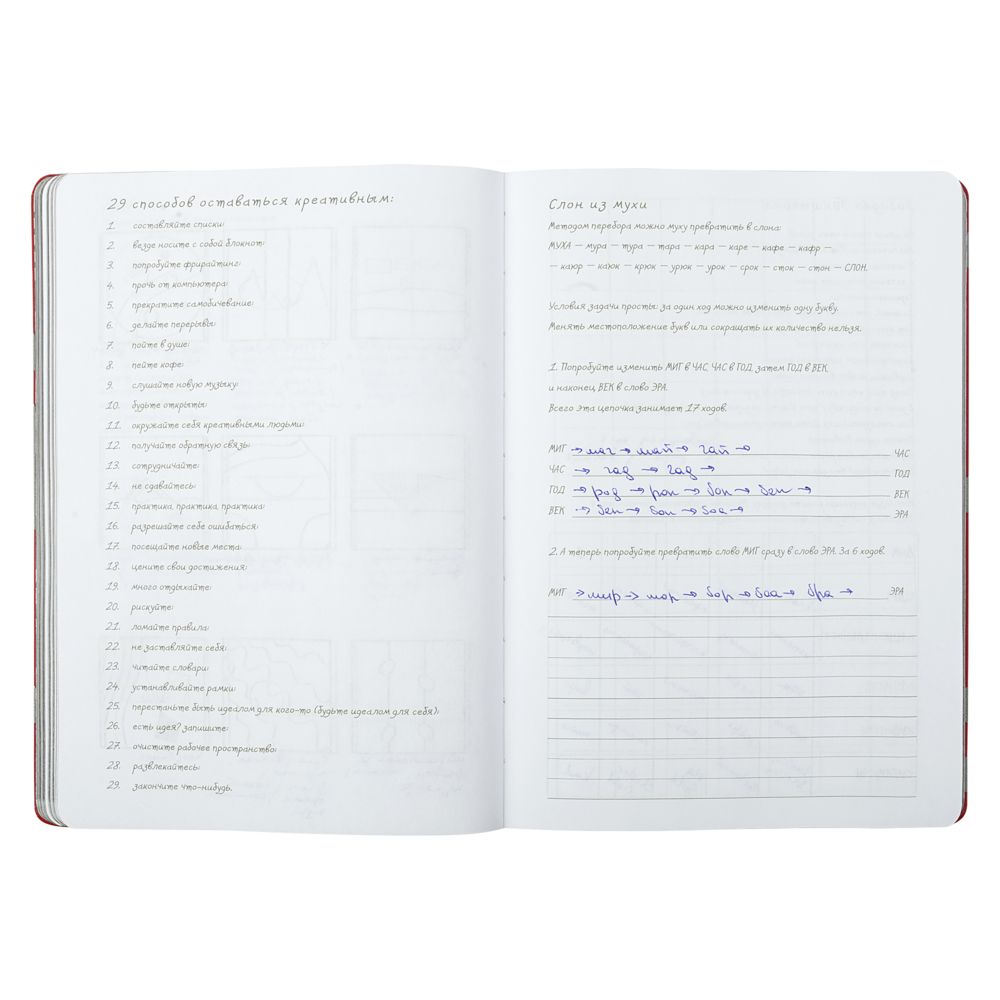 29 способов оставаться креативным:
1. составляйте списки;
2. везде носите с собой блокнот;
3. попробуйте фрирайтинг;
4. прочь от компьютера;
5. прекратите самобичевание;
6. делайте перерывы;
7. пойте в душе;
8. пейте кофе;
9. слушайте новую музыку;
10. будьте открыты;
11. окружайте себя креативными людьми;
12. получайте обратную связь;
13. сотрудничайте;
14. не сдавайтесь;
15. практика, практика, практика;
16. разрешайте себе ошибаться;
17. посещайте новые места;
18. цените свои достижения;
19. много отдыхайте;
20. рискуйте;
21. ломайте правила;
22. не заставляйте себя;
23. читайте словари;
24. устанавливайте рамки;
25. перестаньте быть идеалом для кого-то (будьте идеалом для себя);
26. есть идея? запишите;
27. очистите рабочее пространство;
28. развлекайтесь;
29. закончите что-нибудь.
Слон из мухи
Методом перебора можно муху превратить в слона:
МУХА — мура — тура — тара — кара — каре — кафе — кафр —
— каюр — каюк — крюк — урюк — урок — срок — сток — стон — СЛОН.
Условия задачи просты: за один ход можно изменить одну букву.
Менять местоположение букв или сокращать их количество нельзя.
1. Попробуйте изменить МИГ в ЧАС, ЧАС в ГОД, затем ГОД в ВЕК,
и наконец, ВЕК в слово ЭРА.
Всего эта цепочка занимает 17 ходов.
МИГ → маг → май → гай → ЧАС
ЧАС → гад → гад → ГОД
ГОД → род → рок → бок → бек → ВЕК
ВЕК → бек → бок → боа → ЭРА
2. А теперь попробуйте превратить слово МИГ сразу в слово ЭРА. За 6 ходов.
МИГ → мир → мор → бор → боа → бра → ЭРА